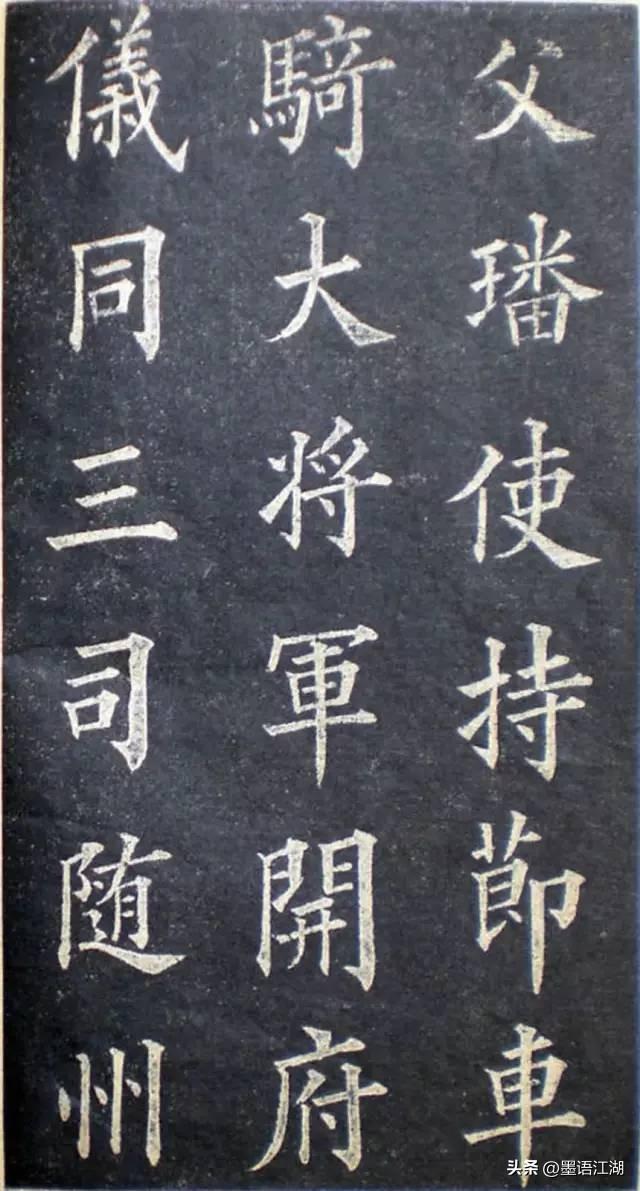 父璠使持節車
騎大将軍開府
儀同三司随州
头条 @墨语江湖